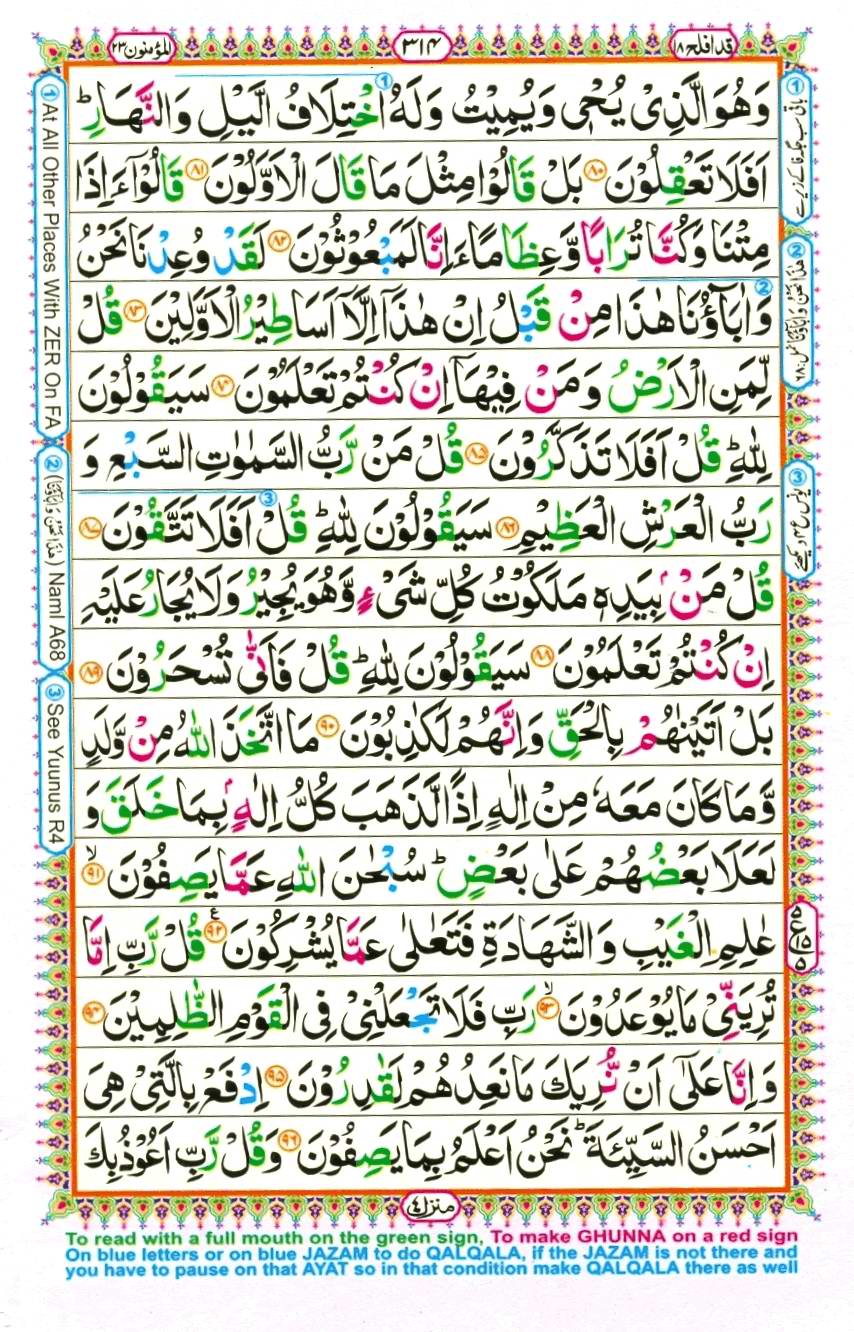 قد افلح ١٨
٣١٤
المؤمنون ٢٣
وَهُوَ الَّذِیْ یُحْیٖ وَیُمِیْتُ وَلَهُ اخْتِلَافُ الَّیْلِ وَالنَّهَارِ ؕ
اَفَلَا تَعْقِلُوْنَ ۝۸۰ بَلْ قَالُوْا مِثْلَ مَا قَالَ الْاَوَّلُوْنَ ۝۸۱ قَالُوْۤا ءَاِذَا
مِتْنَا وَكُنَّا تُرَابًا وَّعِظَامًا ءَاِنَّا لَمَبْعُوْثُوْنَ ۝۸۲ لَقَدْ وُعِدْنَا نَحْنُ
وَاٰبَآؤُنَا هٰذَا مِنْ قَبْلُ اِنْ هٰذَاۤ اِلَّاۤ اَسَاطِیْرُ الْاَوَّلِیْنَ ۝۸۳ قُلْ
لِّمَنِ الْاَرْضُ وَمَنْ فِیْهَاۤ اِنْ كُنْتُمْ تَعْلَمُوْنَ ۝۸۴ سَیَقُوْلُوْنَ
لِلّٰهِ ؕ قُلْ اَفَلَا تَذَكَّرُوْنَ ۝۸۵ قُلْ مَنْ رَّبُّ السَّمٰوٰتِ السَّبْعِ وَ
رَبُّ الْعَرْشِ الْعَظِیْمِ ۝۸۶ سَیَقُوْلُوْنَ لِلّٰهِ ؕ قُلْ اَفَلَا تَتَّقُوْنَ ۝۸۷
قُلْ مَنْۢ بِیَدِهٖ مَلَكُوْتُ كُلِّ شَیْءٍ وَّهُوَ یُجِیْرُ وَلَا یُجَارُ عَلَیْهِ
اِنْ كُنْتُمْ تَعْلَمُوْنَ ۝۸۸ سَیَقُوْلُوْنَ لِلّٰهِ ؕ قُلْ فَاَنّٰی تُسْحَرُوْنَ ۝۸۹
بَلْ اَتَیْنٰهُمْ بِالْحَقِّ وَاِنَّهُمْ لَكٰذِبُوْنَ ۝۹۰ مَا اتَّخَذَ اللّٰهُ مِنْ وَّلَدٍ
وَّمَا كَانَ مَعَهٗ مِنْ اِلٰهٍ اِذًا لَّذَهَبَ كُلُّ اِلٰهٍۭ بِمَا خَلَقَ وَ
لَعَلَا بَعْضُهُمْ عَلٰی بَعْضٍ ؕ سُبْحٰنَ اللّٰهِ عَمَّا یَصِفُوْنَ ۝۹۱ۙ
عٰلِمِ الْغَیْبِ وَالشَّهَادَةِ فَتَعٰلٰی عَمَّا یُشْرِكُوْنَ ۝۹۲ع قُلْ رَّبِّ اِمَّا
تُرِیَنِّیْ مَا یُوْعَدُوْنَ ۝۹۳ۙ رَبِّ فَلَا تَجْعَلْنِیْ فِی الْقَوْمِ الظّٰلِمِیْنَ ۝۹۴
وَاِنَّا عَلٰۤی اَنْ نُّرِیَكَ مَا نَعِدُهُمْ لَقٰدِرُوْنَ ۝۹۵ اِدْفَعْ بِالَّتِیْ هِیَ
اَحْسَنُ السَّیِّئَةَ ؕ نَحْنُ اَعْلَمُ بِمَا یَصِفُوْنَ ۝۹۶ وَقُلْ رَّبِّ اَعُوْذُ بِكَ
منزل ٤
① At All Other Places With ZER On FA
② (هٰذَا نَحْنُ وَاٰبَآؤُنَا) Naml A68
③ See Yuunus R4
To read with a full mouth on the green sign, To make GHUNNA on a red sign
On blue letters or on blue JAZAM to do QALQALA, if the JAZAM is not there and
you have to pause on that AYAT so in that condition make QALQALA there as well